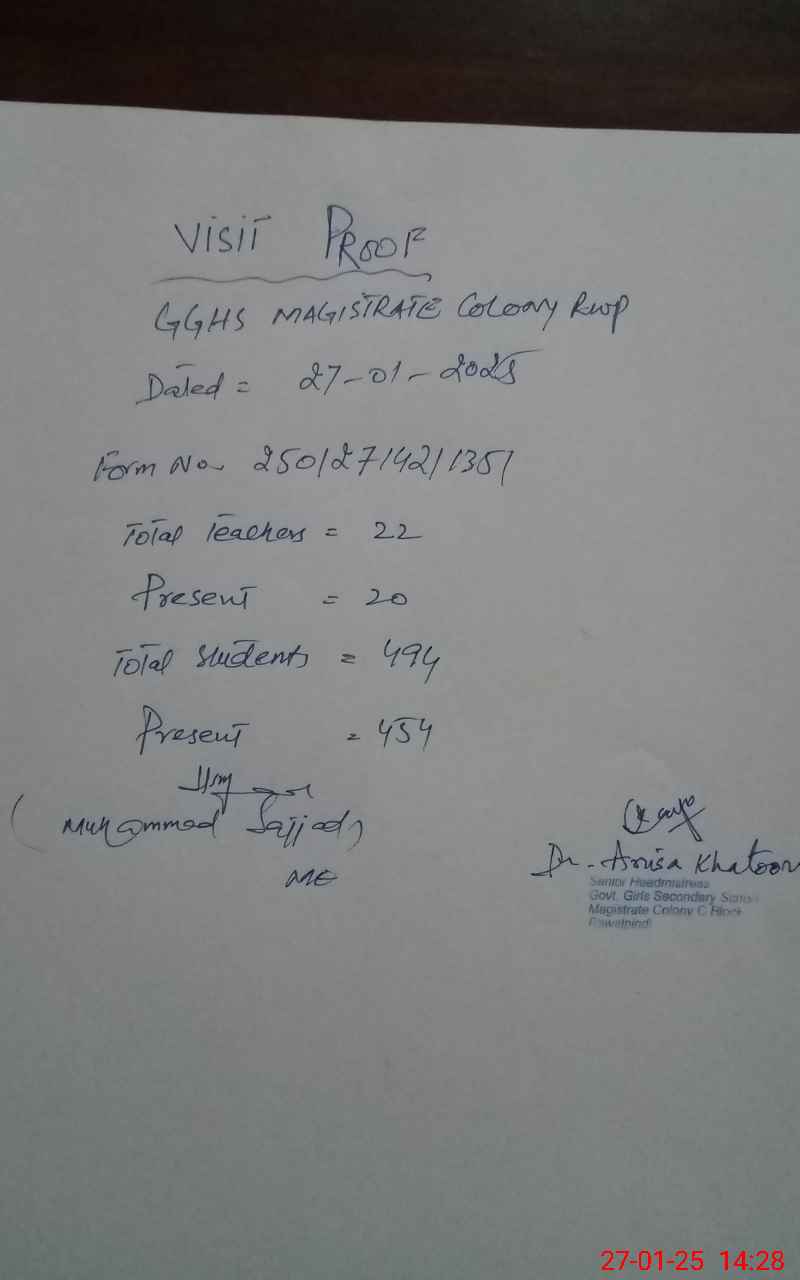 VISIT PROOF
GGHS MAGISTRATE Colony Rwp
Dated = 27-01-2025
Form No 2501271421351
Total Teachers = 22
Present = 20
Total Students = 494
Present = 454
(Muhammad Sajjad)
ME
Dr. Anisa Khatoon
Senior Headmistress
Govt. Girls Secondary School
Magistrate Colony C Block
Rawalpindi
27-01-25 14:28